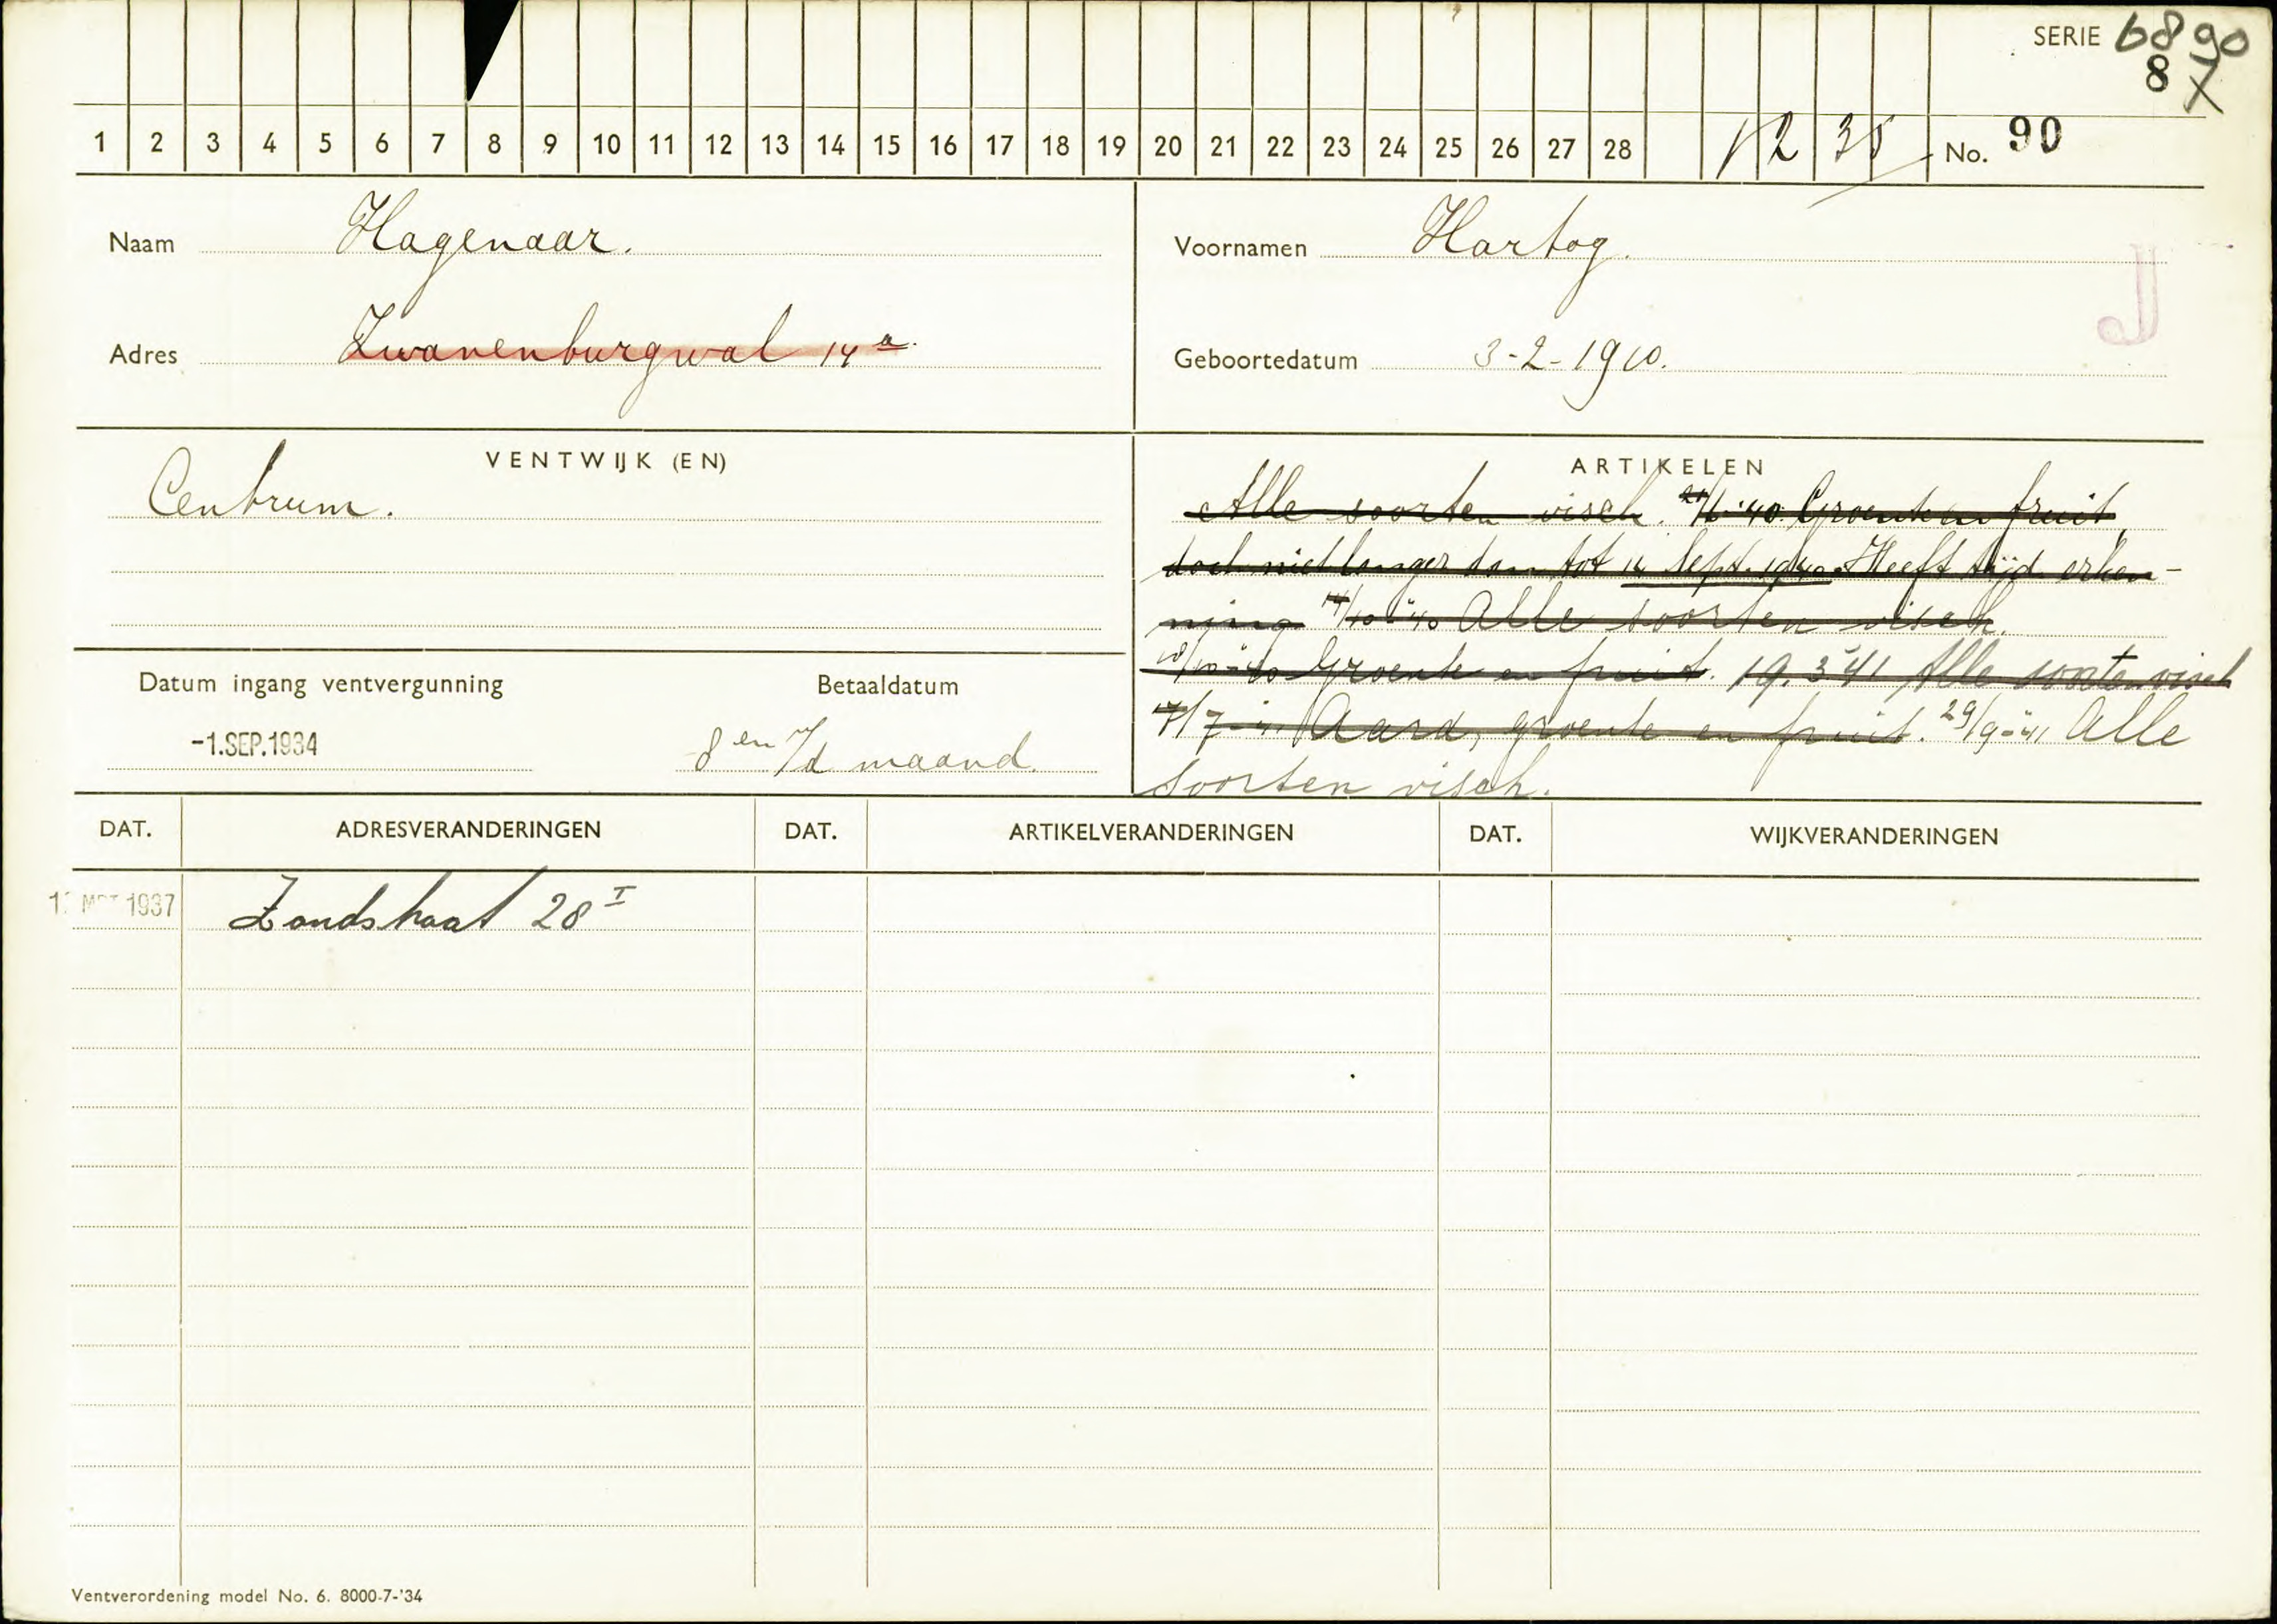 SERIE 6890
8 X
1 2 3 4 5 6 7 8 9 10 11 12 13 14 15 16 17 18 19 20 21 22 23 24 25 26 27 28 No. 90
Naam Hagenaar.
Voornamen Hartog.
J
Adres Zwanenburgwal 14a.
Geboortedatum 3-2-1910.
VENTWIJK (EN)
Centrum.
ARTIKELEN
Alle soorten visch. /6-'40. Groente en fruit,
doch niet langer dan tot Sept. 1940. Heeft tijd. erken-
ning 14/10-'40 Alle soorten visch.
/10-'40 Groente en fruit. 19.3'41 Alle soorten visch
17/7-'41 Aard, groente en fruit. 29/9-'41 Alle
soorten visch.
Datum ingang ventvergunning
-1.SEP.1934
Betaaldatum
8en v/d maand.
DAT. ADRESVERANDERINGEN DAT. ARTIKELVERANDERINGEN DAT. WIJKVERANDERINGEN
1937 Zandstraat 28 I
Ventverordening model No. 6. 8000-7-'34